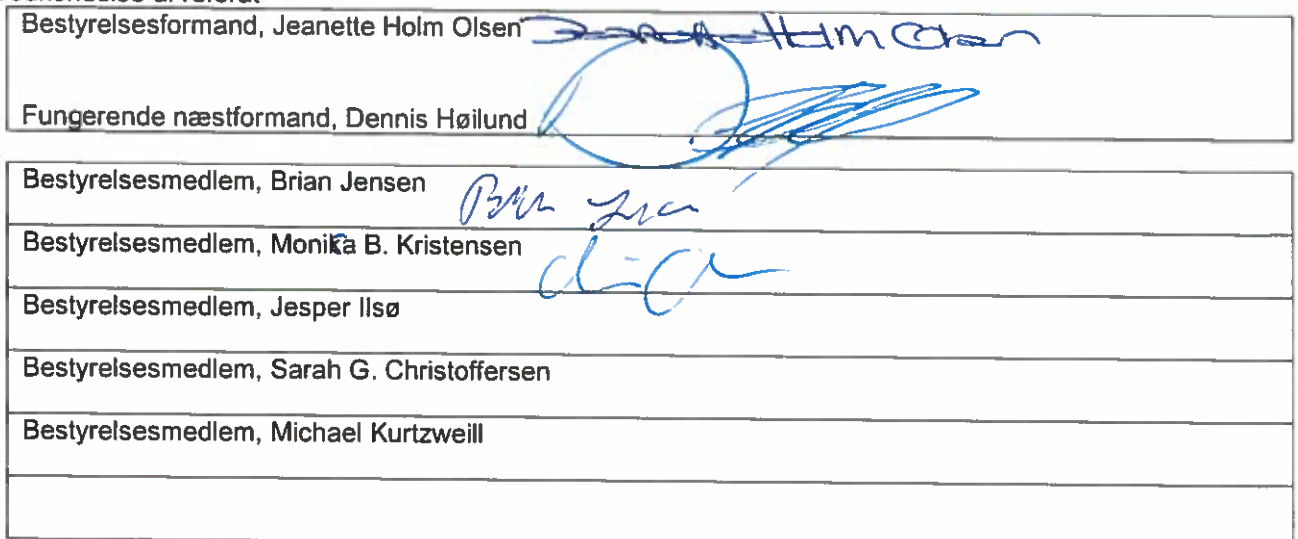 Bestyrelsesformand, Jeanette Holm Olsen Holm Olsen
Fungerende næstformand, Dennis Høilund
Bestyrelsesmedlem, Brian Jensen
Bestyrelsesmedlem, Monika B. Kristensen
Bestyrelsesmedlem, Jesper Ilsø
Bestyrelsesmedlem, Sarah G. Christoffersen
Bestyrelsesmedlem, Michael Kurtzweill